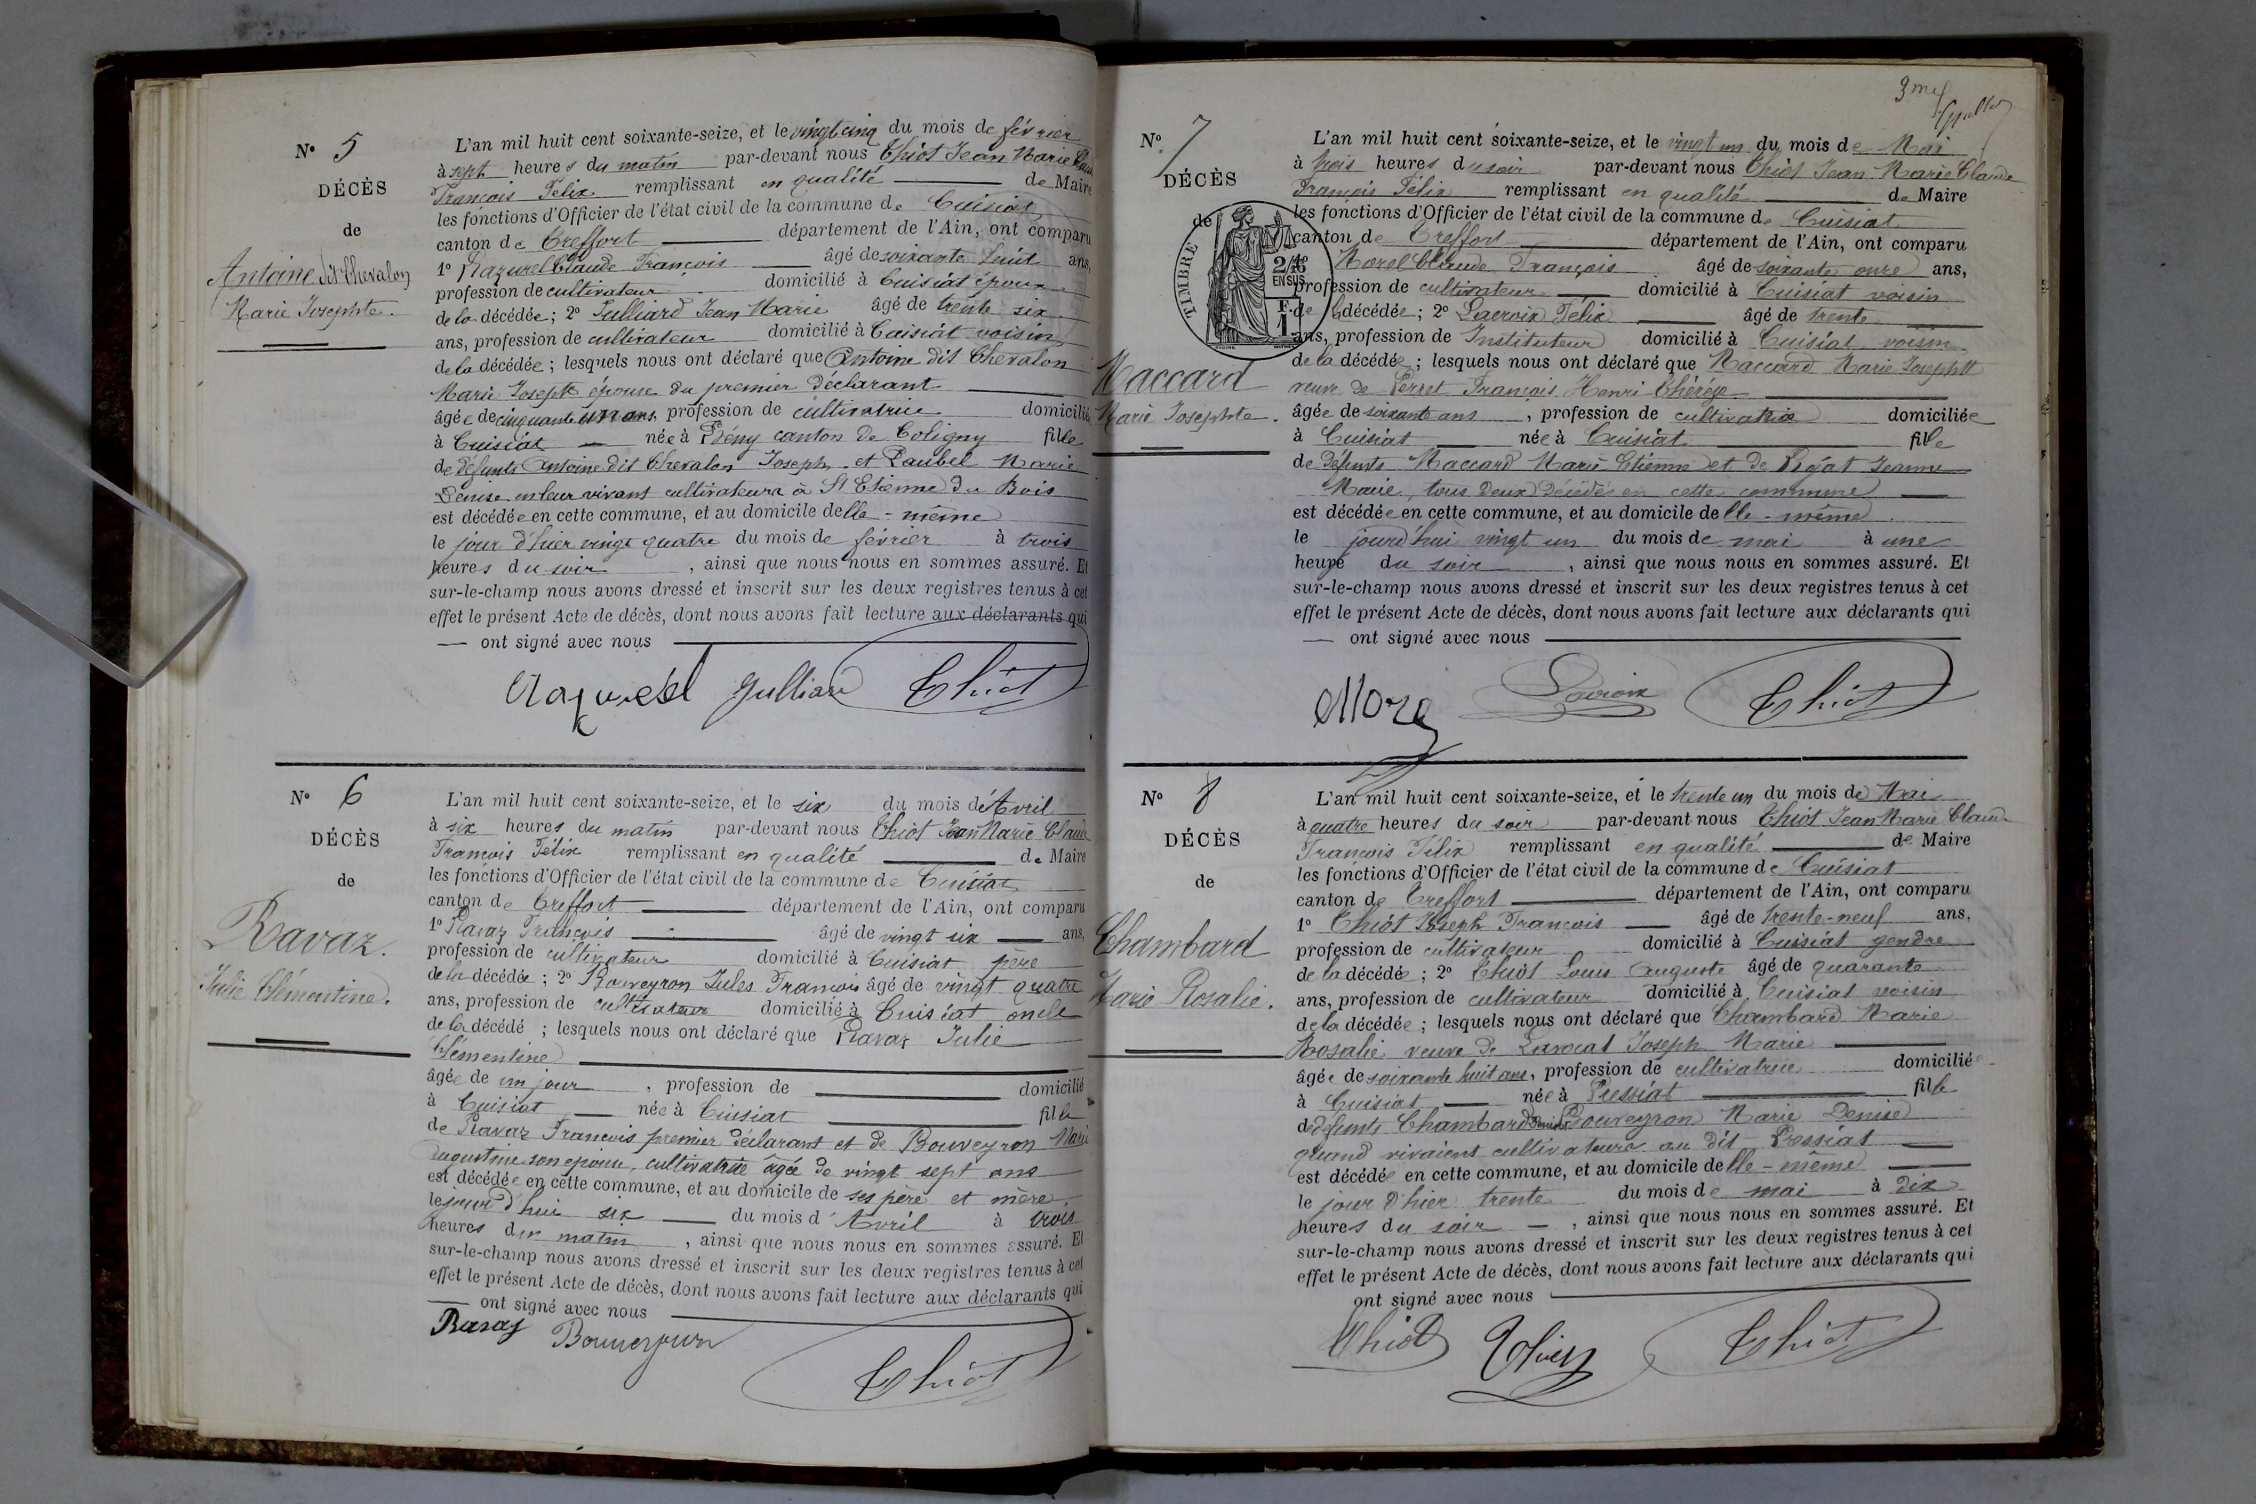 N° 5
DÉCÈS
de
Antoine dit Chevalon
Marie Josephte.
L'an mil huit cent soixante-seize, et le vingt cinq du mois de février
à sept heures du matin par-devant nous Chiot Jean Marie Claude
François Félix remplissant en qualité de Maire
les fonctions d'Officier de l'état civil de la commune de Cuisiat
canton de Treffort département de l'Ain, ont comparu
1° Razurel Claude François âgé de soixante huit ans,
profession de cultivateur domicilié à Cuisiat époux
de la décédée; 2° Julliard Jean Marie âgé de trente six
ans, profession de cultivateur domicilié à Cuisiat voisin
de la décédée; lesquels nous ont déclaré que Antoine dit Chevalon
Marie Josephte épouse du premier déclarant
âgée de cinquante un ans, profession de cultivatrice domiciliée
à Cuisiat née à Bény canton de Coligny fille
de défunts Antoine dit Chevalon Joseph et Paubel Marie
Denise en leur vivant cultivateurs à St Etienne du Bois
est décédée en cette commune, et au domicile d'elle-même
le jour d'hier vingt quatre du mois de février à trois
heures du soir, ainsi que nous nous en sommes assuré. Et
sur-le-champ nous avons dressé et inscrit sur les deux registres tenus à cet
effet le présent Acte de décès, dont nous avons fait lecture aux déclarants qui
ont signé avec nous
Julliard Chiot
N° 6
DÉCÈS
de
Ravaz.
Julie Clémentine.
L'an mil huit cent soixante-seize, et le six du mois d'Avril
à six heures du matin par-devant nous Chiot Jean Marie Claude
François Félix remplissant en qualité de Maire
les fonctions d'Officier de l'état civil de la commune de Cuisiat
canton de Treffort département de l'Ain, ont comparu
1° Ravaz François âgé de vingt six ans,
profession de cultivateur domicilié à Cuisiat père
de la décédée; 2° Bouveyron Jules François âgé de vingt quatre
ans, profession de cultivateur domicilié à Cuisiat oncle
de la décédé; lesquels nous ont déclaré que Ravaz Julie
Clémentine
âgée de un jour, profession de domicilié
à Cuisiat née à Cuisiat fille
de Ravaz François premier déclarant et de Bouveyron Marie
Augustine son épouse, cultivatrice âgée de vingt sept ans
est décédée en cette commune, et au domicile de ses père et mère
le jour d'hui six du mois d'Avril à trois
heures du matin, ainsi que nous nous en sommes assuré. Et
sur-le-champ nous avons dressé et inscrit sur les deux registres tenus à cet
effet le présent Acte de décès, dont nous avons fait lecture aux déclarants qui
ont signé avec nous
Ravaz Bouveyron Chiot
N° 7
DÉCÈS
de
TIMBRE
2/10 EN SUS
F. 1
Maccard
Marie Josephte.
L'an mil huit cent soixante-seize, et le vingt un du mois de Mai
à trois heures du soir par-devant nous Chiot Jean-Marie Claude
François Félix remplissant en qualité de Maire
les fonctions d'Officier de l'état civil de la commune de Cuisiat
canton de Treffort département de l'Ain, ont comparu
Morel Claude François âgé de soixante onze ans,
profession de cultivateur domicilié à Cuisiat voisin
de la décédée; 2° Lacroix Félix âgé de trente
ans, profession de Instituteur domicilié à Cuisiat voisin
de la décédée; lesquels nous ont déclaré que Maccard Marie Josephte
veuve de Perret François Henri Thérèze
âgée de soixante ans, profession de cultivatrice domiciliée
à Cuisiat née à Cuisiat fille
de défunts Maccard Marie Etienne et de Jeanne
Marie, tous deux décédés en cette commune
est décédée en cette commune, et au domicile d'elle-même
le jourd'hui vingt un du mois de mai à une
heure du soir, ainsi que nous nous en sommes assuré. Et
sur-le-champ nous avons dressé et inscrit sur les deux registres tenus à cet
effet le présent Acte de décès, dont nous avons fait lecture aux déclarants qui
ont signé avec nous
Morel Lacroix Chiot
N° 8
DÉCÈS
de
Chambard
Marie Rosalie.
L'an mil huit cent soixante-seize, et le trente un du mois de Mai
à quatre heures du soir par-devant nous Chiot Jean Marie Claude
François Félix remplissant en qualité de Maire
les fonctions d'Officier de l'état civil de la commune de Cuisiat
canton de Treffort département de l'Ain, ont comparu
1° Chiot Joseph François âgé de trente-neuf ans,
profession de cultivateur domicilié à Cuisiat gendre
de la décédée; 2° Chiot Louis Auguste âgé de quarante
ans, profession de cultivateur domicilié à Cuisiat voisin
de la décédée; lesquels nous ont déclaré que Chambard Marie
Rosalie veuve de Lavocat Joseph Marie
âgée de soixante huit ans, profession de cultivatrice domiciliée
à Cuisiat née à Pressiat fille
de défunts Chambard Denis et Bouveyron Marie Denise
quand vivaient cultivateurs au dit Pressiat
est décédée en cette commune, et au domicile d'elle-même
le jour d'hier trente du mois de mai à dix
heures du soir, ainsi que nous nous en sommes assuré. Et
sur-le-champ nous avons dressé et inscrit sur les deux registres tenus à cet
effet le présent Acte de décès, dont nous avons fait lecture aux déclarants qui
ont signé avec nous
Chiot Chiot Chiot